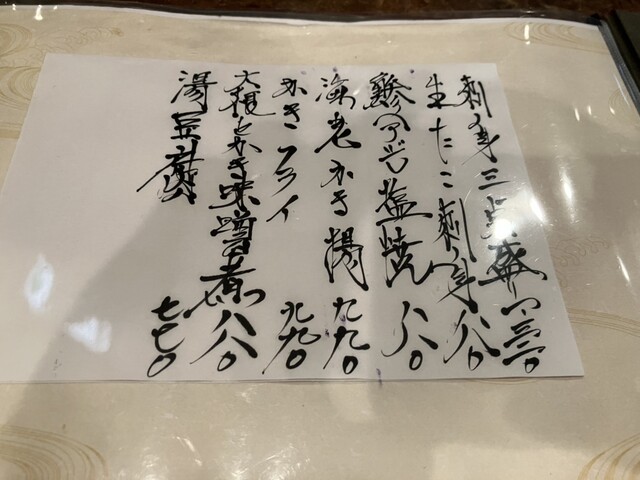 刺身三点盛 一三二〇
生たこ刺身 八八〇
塩焼 八八〇
海老かき揚 九九〇
かきフライ 九九〇
大根とかき味噌煮 八八〇
湯豆腐 七七〇